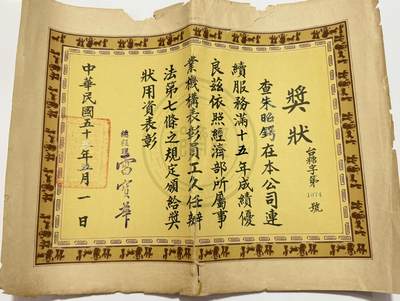 獎狀
台糖字第1074號
查朱昭鍔在本公司連
續服務滿十五年成績優
良茲依照經濟部所屬事
業機構表彰員工久任辦
法第七條之規定頒給獎
狀用資表彰
總經理
雷寶華
中華民國五十年五月一日